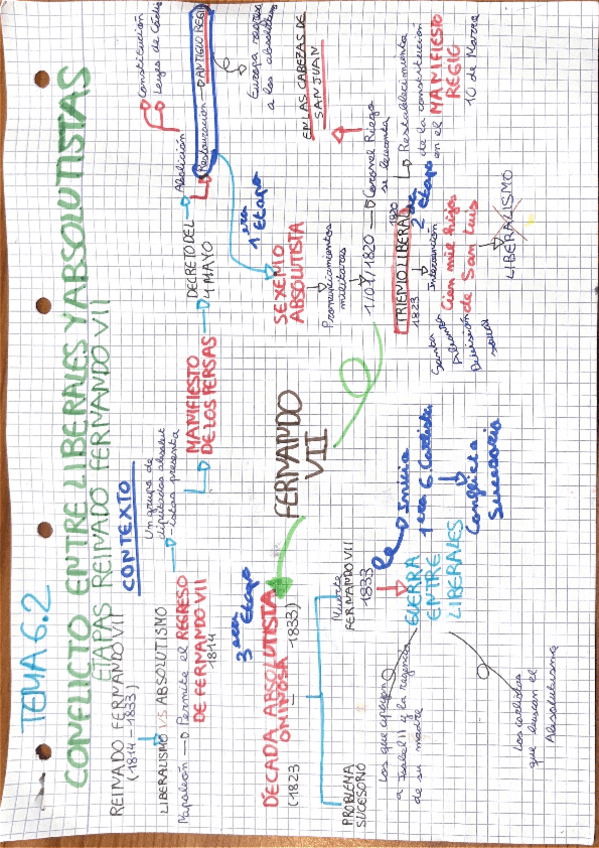 TEMA 6.2
CONFLICTO ENTRE LIBERALES Y ABSOLUTISTAS
ETAPAS REINADO FERNANDO VII
REINADO FERNANDO VII
(1814-1833)
CONTEXTO
LIBERALISMO VS ABSOLUTISMO
Napoleón → Permite el REGRESO
DE FERNANDO VII
1814
Un grupo de
diputados absolut
-istas presenta
MANIFIESTO
DE LOS PERSAS
DECRETO DEL
4 MAYO
Abolición
Constitución
Leyes de Cádiz
Restauración → ANTIGUO REG
Europa
a los absolutis
FERNANDO
VII
1era
Etapa
SEXENIO
ABSOLUTISTA
Pronunciamientos
militares
1/01/1820 → Coronel Riego
se levanta
EN LAS CABEZAS DE
SAN JUAN
TRIENIO LIBERAL
1820
1823
2da
Etapa
Restablecimiento
de la constitución
en el MANIFIESTO
REGIO
10 de Marzo
Intervención
Cien mil hijos
de San Luis
Santa
Alianza
División
LIBERALISMO
3era Etapa
DÉCADA ABSOLUTISTA
OMINOSA
(1823
1833)
PROBLEMA
SUCESORIO
Muerte
FERNANDO VII
1833
GUERRA
ENTRE
LIBERALES
Inicia
1era G. Carlista
Conflicto
Sucesorio
Los que apoyan
a Isabel II y la regencia
de su madre
Los carlistas
que buscan el
Absolutismo